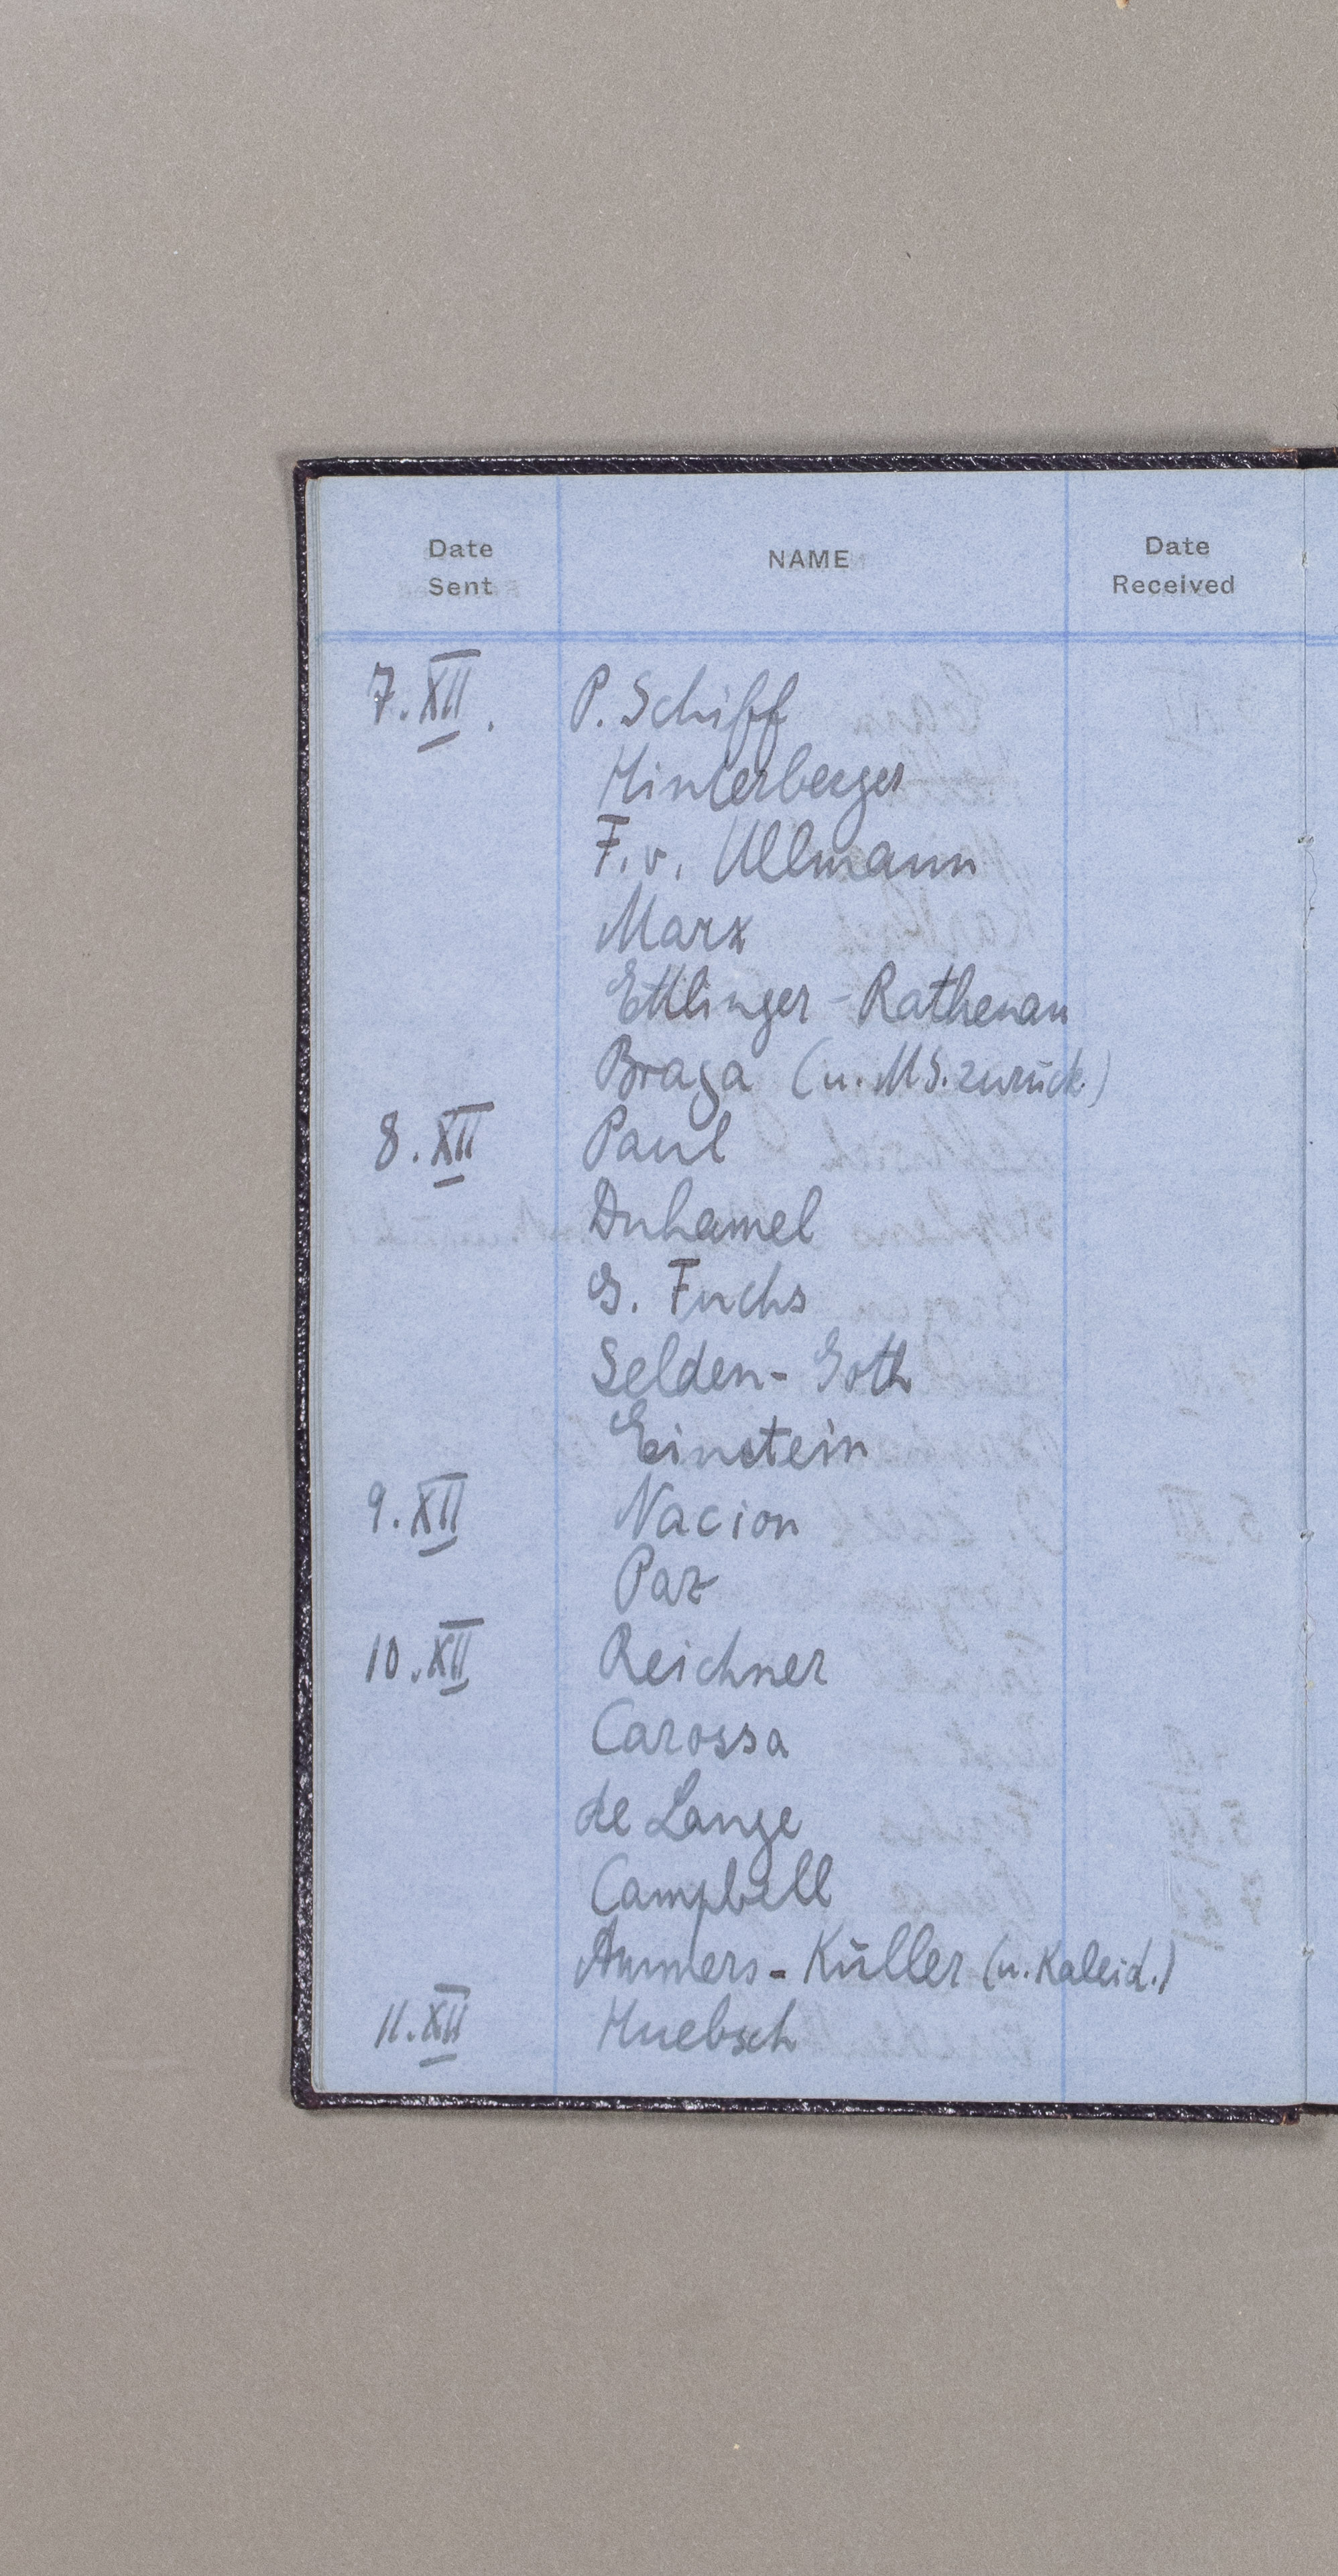 Date Sent NAME Date Received
7.XII. P. Schiff
Hinterberger
F. v. Ullmann
Marx
Ettlinger-Rathenau
Braga (u. MS. zurück.)
8.XII Paul
Duhamel
G. Fuchs
Selden-Goth
Einstein
9.XII Nacion
Paz
10.XII Reichner
Carossa
de Lange
Campbell
Ammers-Küller (u. Kaleid.)
11.XII Huebsch